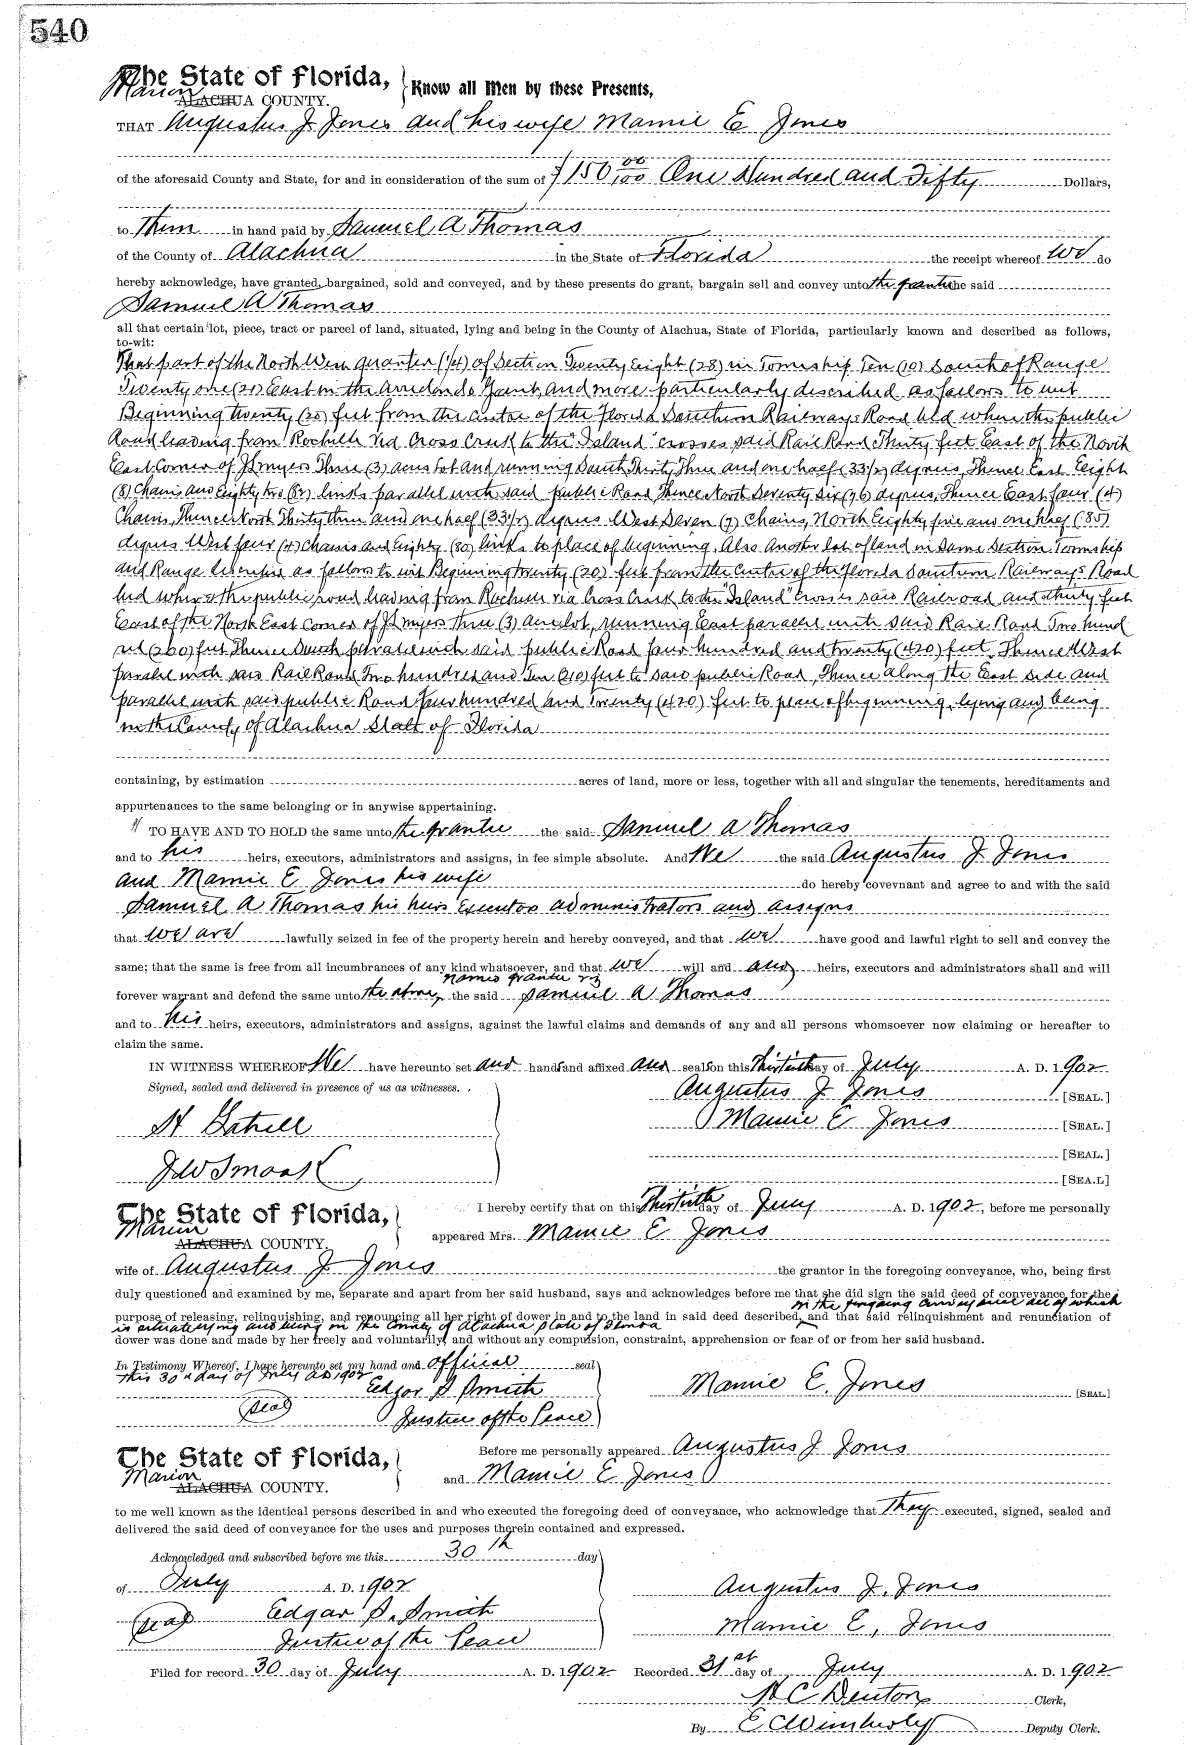 540
The State of Florida,
Marion
ALACHUA COUNTY. } Know all Men by these Presents,
THAT Augustus J Jones and his wife Mamie E Jones
of the aforesaid County and State, for and in consideration of the sum of $150 00/100 One Hundred and Fifty Dollars,
to them in hand paid by Samuel A Thomas
of the County of Alachua in the State of Florida the receipt whereof we do
hereby acknowledge, have granted, bargained, sold and conveyed, and by these presents do grant, bargain sell and convey unto the grantee the said
Samuel A Thomas
all that certain lot, piece, tract or parcel of land, situated, lying and being in the County of Alachua, State of Florida, particularly known and described as follows,
to-wit:
That part of the North West quarter (1/4) of Section Twenty Eight (28) in Township Ten (10) South of Range
Twenty one (21) East in the Arredondo Grant, and more particularly described as follows to wit
Beginning twenty (20) feet from the centre of the Florida Southern Railways Road bed where the public
Road leading from Rochelle via Cross Creek to the "Island" crosses said Rail Road Thirty feet East of the North
East Corner of J S Myers Three (3) acres lot and running South Thirty Three and one half (33 1/2) degrees, Thence East Eight
(8) Chains and Eighty two (82) links parallel with said public Road, Thence North Seventy Six (76) degrees, Thence East four (4)
Chains, Thence North Thirty three and one half (33 1/2) degrees West Seven (7) Chains, North Eighty five and one half (85)
degrees West four (4) Chains and Eighty (80) links to place of beginning. Also Another lot of land in Same Section Township
and Range described as follows to wit Beginning twenty (20) feet from the Centre of the Florida Southern Railways Road
bed where the public road leading from Rochelle via Cross Creek to the "Island" crosses said Railroad and thirty feet
East of the North East Corner of J S Myers three (3) acre lot, running East parallel with said Rail Road Two hund
red (200) feet Thence South parallel with said public Road four hundred and twenty (420) feet, Thence West
parallel with said Rail Road Two hundred and Ten (210) feet to said public Road, Thence along the East side and
parallel with said public Road four hundred and Twenty (420) feet to place of beginning, lying and being
in the County of Alachua State of Florida
containing, by estimation acres of land, more or less, together with all and singular the tenements, hereditaments and
appurtenances to the same belonging or in anywise appertaining.
TO HAVE AND TO HOLD the same unto the grantee the said Samuel A Thomas
and to his heirs, executors, administrators and assigns, in fee simple absolute. And We the said Augustus J Jones
and Mamie E Jones his wife do hereby covevnant and agree to and with the said
Samuel A Thomas his heirs Executors administrators and assigns
that we are lawfully seized in fee of the property herein and hereby conveyed, and that we have good and lawful right to sell and convey the
same; that the same is free from all incumbrances of any kind whatsoever, and that we will and our heirs, executors and administrators shall and will
named grantee
forever warrant and defend the same unto the above the said Samuel A Thomas
and to his heirs, executors, administrators and assigns, against the lawful claims and demands of any and all persons whomsoever now claiming or hereafter to
claim the same.
IN WITNESS WHEREOF We have hereunto set our hands and affixed our seals on this Thirtieth day of July A. D. 1902
Signed, sealed and delivered in presence of us as witnesses.
Augustus J Jones [SEAL.]
Mamie E Jones [SEAL.]
H Gatrell
[SEAL.]
J W Smoak
[SEA.L]
The State of Florida,
Marion
ALACHUA COUNTY.
I hereby certify that on this Thirtieth day of July A. D. 1902, before me personally
appeared Mrs. Mamie E Jones
wife of Augustus J Jones the grantor in the foregoing conveyance, who, being first
duly questioned and examined by me, separate and apart from her said husband, says and acknowledges before me that she did sign the said deed of conveyance for the
in the forgoing conveyance all of which
purpose of releasing, relinquishing, and renouncing all her right of dower in and to the land in said deed described, and that said relinquishment and renunciation of
is situate lying and being in the County of Alachua State of Florida
dower was done and made by her freely and voluntarily, and without any compulsion, constraint, apprehension or fear of or from her said husband.
In Testimony Whereof, I have hereunto set my hand and official seal
this 30th day of July AD 1902
Edgar S Smith
Mamie E. Jones [SEAL]
(Seal) Justice of the Peace
The State of Florida,
Marion
ALACHUA COUNTY.
Before me personally appeared Augustus J Jones
and Mamie E Jones
to me well known as the identical persons described in and who executed the foregoing deed of conveyance, who acknowledge that They executed, signed, sealed and
delivered the said deed of conveyance for the uses and purposes therein contained and expressed.
Acknowledged and subscribed before me this 30th day
of July A. D. 1902
Augustus J. Jones
(Seal) Edgar S. Smith
Mamie E, Jones
Justice of the Peace
Filed for record 30 day of July A. D. 1902 Recorded 31st day of July A. D. 1902
H C Denton Clerk,
By E C Wimberly Deputy Clerk.